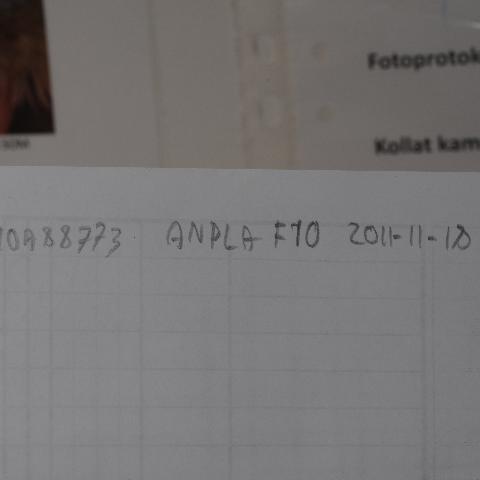 Fotoprotok
Kollat kam
10A88773 ANPLA F10 2011-11-18